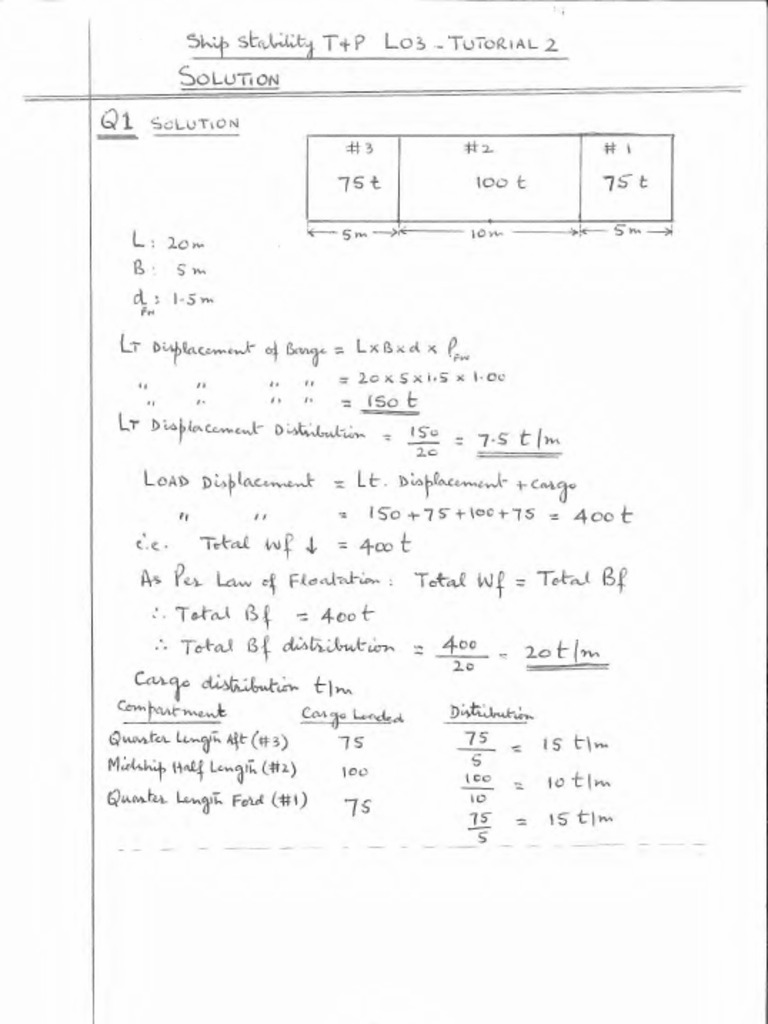 Ship Stability T+P LO3 - TUTORIAL 2
SOLUTION
Q1 SOLUTION
#3 #2 #1
75 t 100 t 75 t
5m 10m 5m
L: 20m
B: 5m
d FW: 1.5m
LT Displacement of Barge = L×B×d×ρFW
" " " " = 20×5×1.5×1.00
" " " " = 150 t
LT Displacement Distribution = 150/20 = 7.5 t/m
LOAD Displacement = Lt. Displacement + cargo
" " = 150+75+100+75 = 400 t
i.e. Total Wf ↓ = 400 t
As Per Law of Floatation: Total Wf = Total Bf
∴ Total Bf = 400t
∴ Total Bf distribution = 400/20 = 20 t/m
Cargo distribution t/m
Compartment Cargo Loaded Distribution
Quarter Length Aft (#3) 75 75/5 = 15 t/m
Midship Half Length (#2) 100 100/10 = 10 t/m
Quarter Length Ford (#1) 75 75/5 = 15 t/m